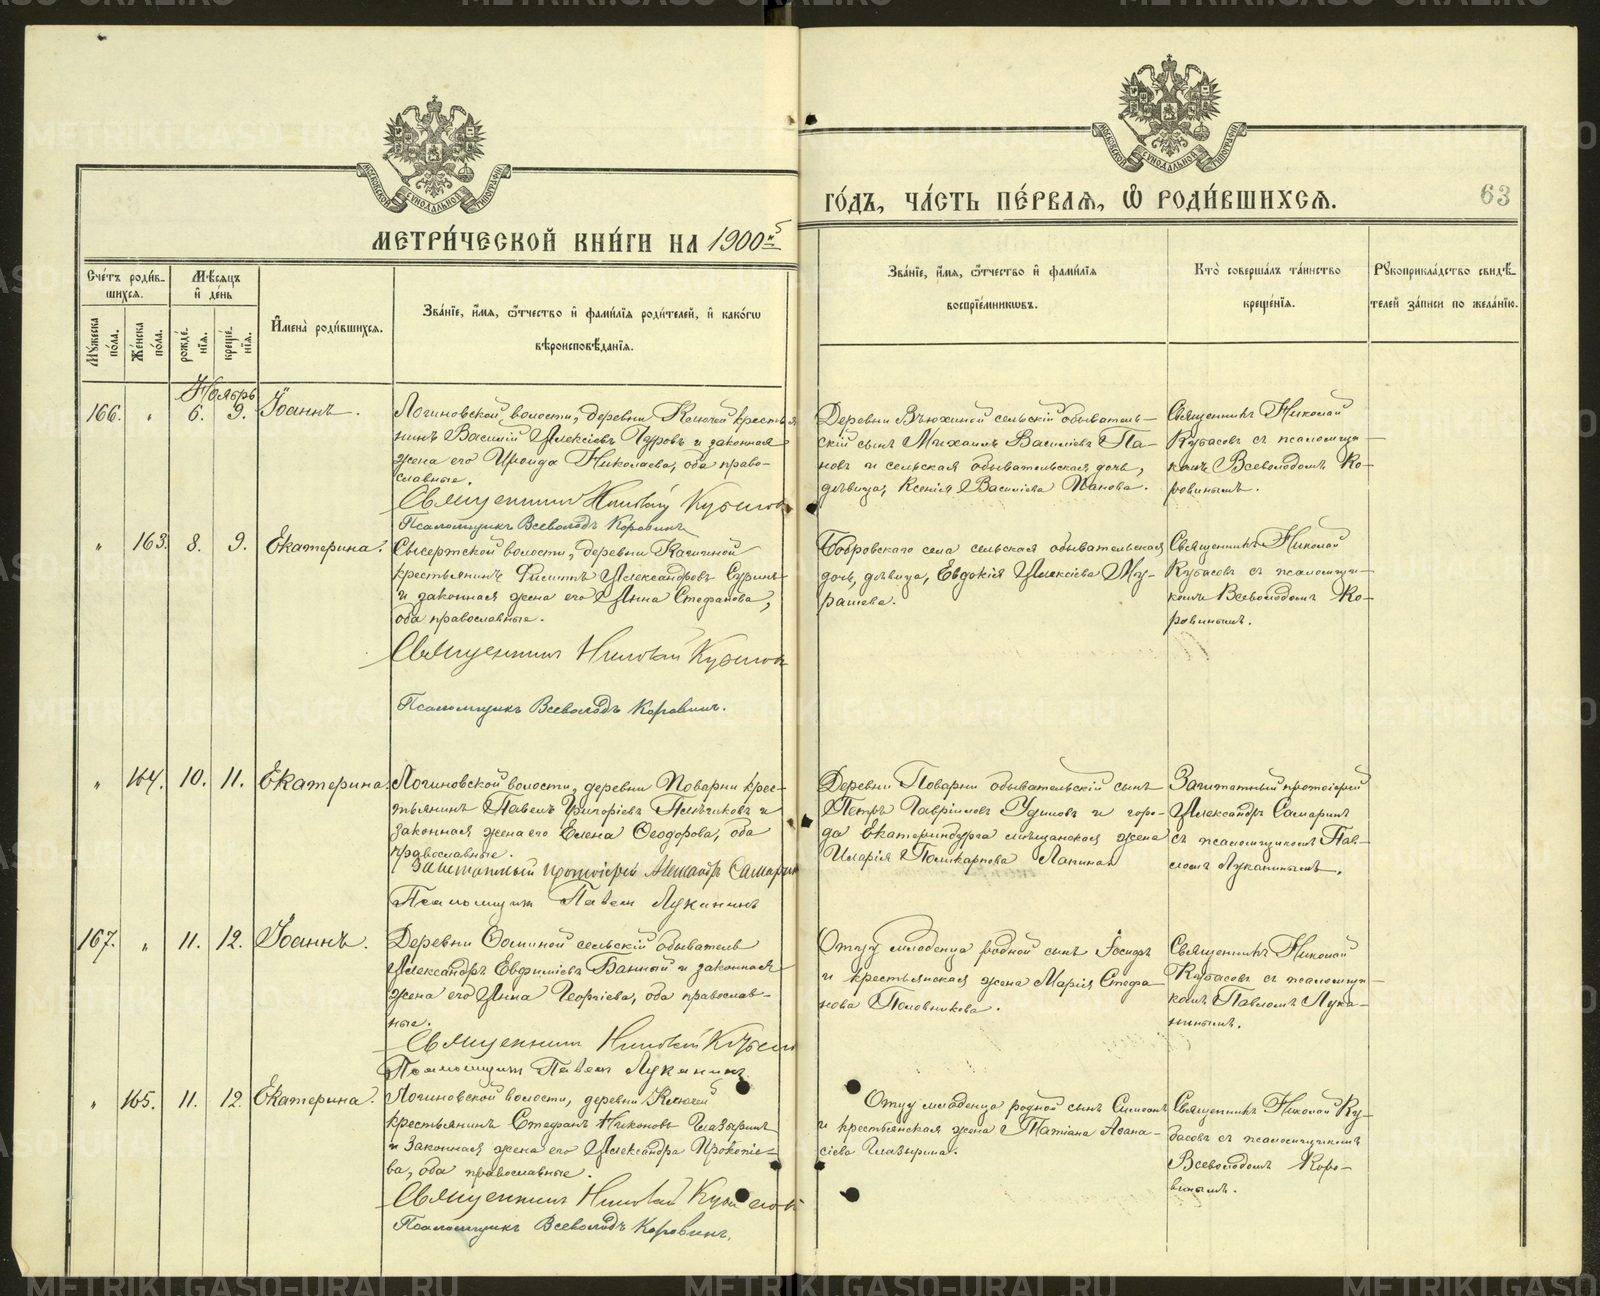 МЕТРИ́ЧЕСКОЙ КНИ́ГИ НА 1900 й
ГО́ДЪ, ЧА́СТЬ ПЕ́РВАѦ, Ѽ РОДИ́ВШИХСѦ.
63
Сче́тъ роди́вшихсѧ.
Мꙋ́жеска по́ла.
Же́нска по́ла.
Мѣ́сѧцъ и҆ де́нь
рожде́нїѧ.
креще́нїѧ.
И҆мена̀ роди́вшихсѧ.
Зва́нїе, и҆́мѧ, ѻ҆́тчество и҆ фами́лїѧ роди́телей, и҆ како́гѡ
вѣроисповѣ́данїѧ.
Зва́нїе, и҆́мѧ, ѻ҆́тчество и҆ фами́лїѧ
воспрїе́мникѡвъ.
Кто̀ соверша́лъ та́инство
креще́нїѧ.
Рꙋкоприкла́дство свидѣ́-
телей за́писи по жела́нїю.
Ноябрь
166. " 6. 9. Іоаннъ.
Логиновской волости, деревни Ключей кресть-
янинъ Василій Алексіевъ Чуровъ и законная
жена его Ираида Николаева, оба право-
славные.
Священникъ Николай Кубасовъ
Псаломщикъ Всеволодъ Коровинъ
Деревни Вьюхиной сельскій обыватель-
скій сынъ Михаилъ Василіевъ Па-
новъ и сельская обывательская дочь,
дѣвица, Ксенія Василіева Панова.
Священникъ Николай
Кубасовъ съ псаломщи-
комъ Всеволодомъ Ко-
ровинымъ.
" 163. 8. 9. Екатерина.
Сысертской волости, деревни Кашиной
крестьянинъ Филиппъ Александровъ Суринъ
и законная жена его Анна Стефанова,
оба православные.
Священникъ Николай Кубасовъ
Псаломщикъ Всеволодъ Коровинъ.
Бобровскаго села сельская обывательская
дочь, дѣвица, Евдокія Алексіева Му-
рашева.
Священникъ Николай
Кубасовъ съ псаломщи-
комъ Всеволодомъ Ко-
ровинымъ.
" 164. 10. 11. Екатерина.
Логиновской волости, деревни Поварни крес-
тьянинъ Павелъ Григоріевъ и
законная жена его Елена Ѳеодорова, оба
православные.
Заштатный протоіерей Александръ Самаринъ
Псаломщикъ Павелъ Луканинъ
Деревни Поварни обывательскій сынъ
Петръ Гавріиловъ и горо-
да Екатеринбурга мѣщанская жена
Иларія Поликарпова Лапина.
Заштатный протоіерей
Александръ Самаринъ
съ псаломщикомъ Пав-
ломъ Луканинымъ.
167. " 11. 12. Іоаннъ.
Деревни Ѳоминой сельскій обыватель
Александръ Евфиміевъ Банный и законная
жена его Анна Георгіева, оба православ-
ные.
Священникъ Николай Кубасовъ
Псаломщикъ Павелъ Луканинъ
Отцу младенца родной сынъ Іосифъ
и крестьянская жена Марія Стефа-
нова Половникова.
Священникъ Николай
Кубасовъ съ псаломщи-
комъ Павломъ Лука-
нинымъ.
" 165. 11. 12. Екатерина.
Логиновской волости, деревни Ключей
крестьянинъ Стефанъ Никоновъ Глазыринъ
и законная жена его Александра Прокопіе-
ва, оба православные.
Священникъ Николай Кубасовъ
Псаломщикъ Всеволодъ Коровинъ.
Отцу младенца родной сынъ Симеонъ
и крестьянская жена Татіана Аѳана-
сіева Глазырина.
Священникъ Николай Ку-
басовъ съ псаломщикомъ
Всеволодомъ Коро-
винымъ.
METRIKI.GASO-URAL.RU